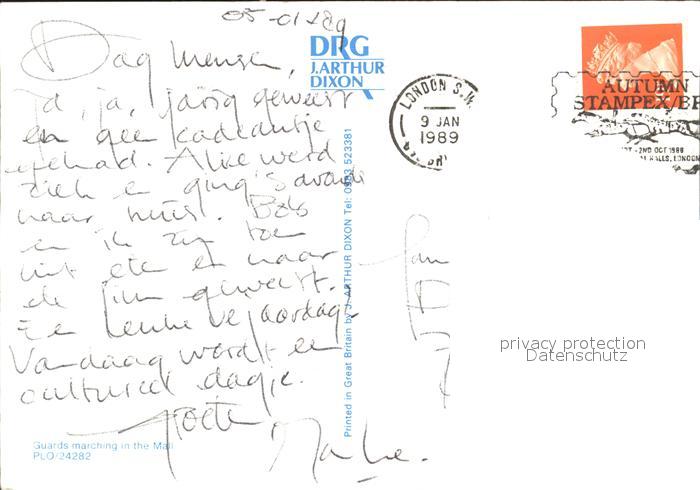 05-01-89
Dag mensen,
Ja, ja, jarig geweest
en geen cadeautje
gehad. Alice werd
ziek en ging 's avonds
naar huis. Bob
en ik zijn toen
uit eten en naar
de film geweest.
Een leuke verjaardag.
Vandaag wordt een
cultureel dagje.
Groeten
DRG
J.ARTHUR
DIXON
LONDON S.W.
9 JAN
1989
AUTUMN
STAMPEX/B
-2ND OCT 1988
HALLS, LONDON
Printed in Great Britain by J. ARTHUR DIXON Tel: 0983 523381
privacy protection
Datenschutz
Guards marching in the Mall
PLO/24282